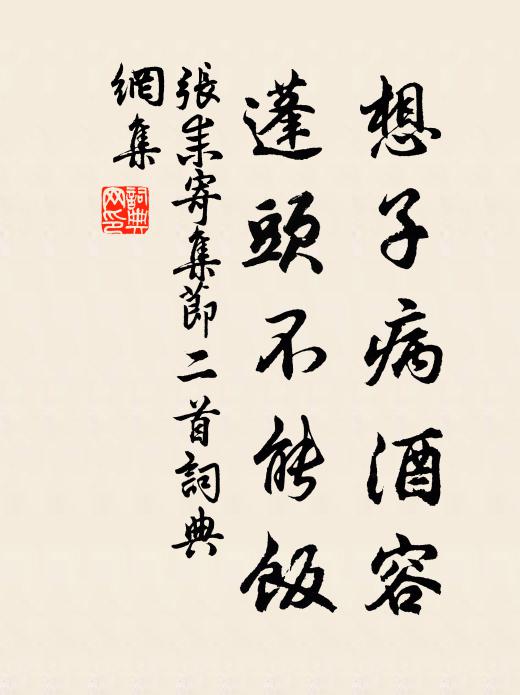 想子病酒容
蓬頭不能飯
張耒寄集節二首詞典
網集
詞典
网印